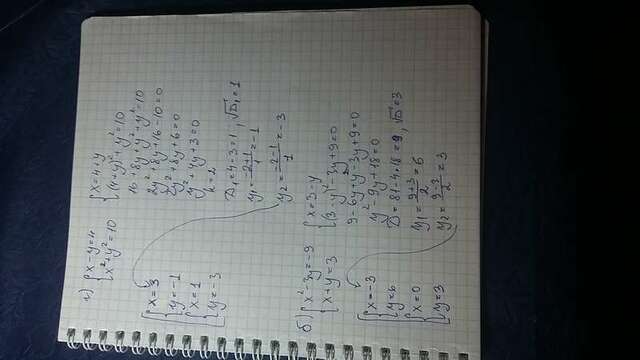 г) { x-y=4
x²+y²=10
{ x=4+y
(4+y)²+y²=10
16+8y+y²+y²=10
2y²+8y+16-10=0
2y²+8y+6=0
y²+4y+3=0
k=2
D₁=4-3=1, √D₁=1
y₁=(-2+1)/1=-1
y₂=(-2-1)/1=-3
[ { x=3
y=-1
{ x=1
y=-3
б) { x²-3y=-9
x+y=3
{ x=3-y
(3-y)²-3y+9=0
9-6y+y²-3y+9=0
y²-9y+18=0
D=81-4·18=9, √D=3
y₁=(9+3)/2=6
y₂=(9-3)/2=3
[ { x=-3
y=6
{ x=0
y=3